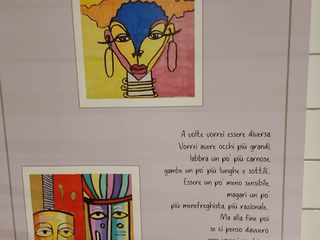 A volte vorrei essere diversa
Vorrei avere occhi più grandi,
labbra un po' più carnose,
gambe un po' più lunghe e sottili.
Essere un po' meno sensibile,
magari un po'
più menefreghista, più razionale.
Ma alla fine poi
se ci penso davvero